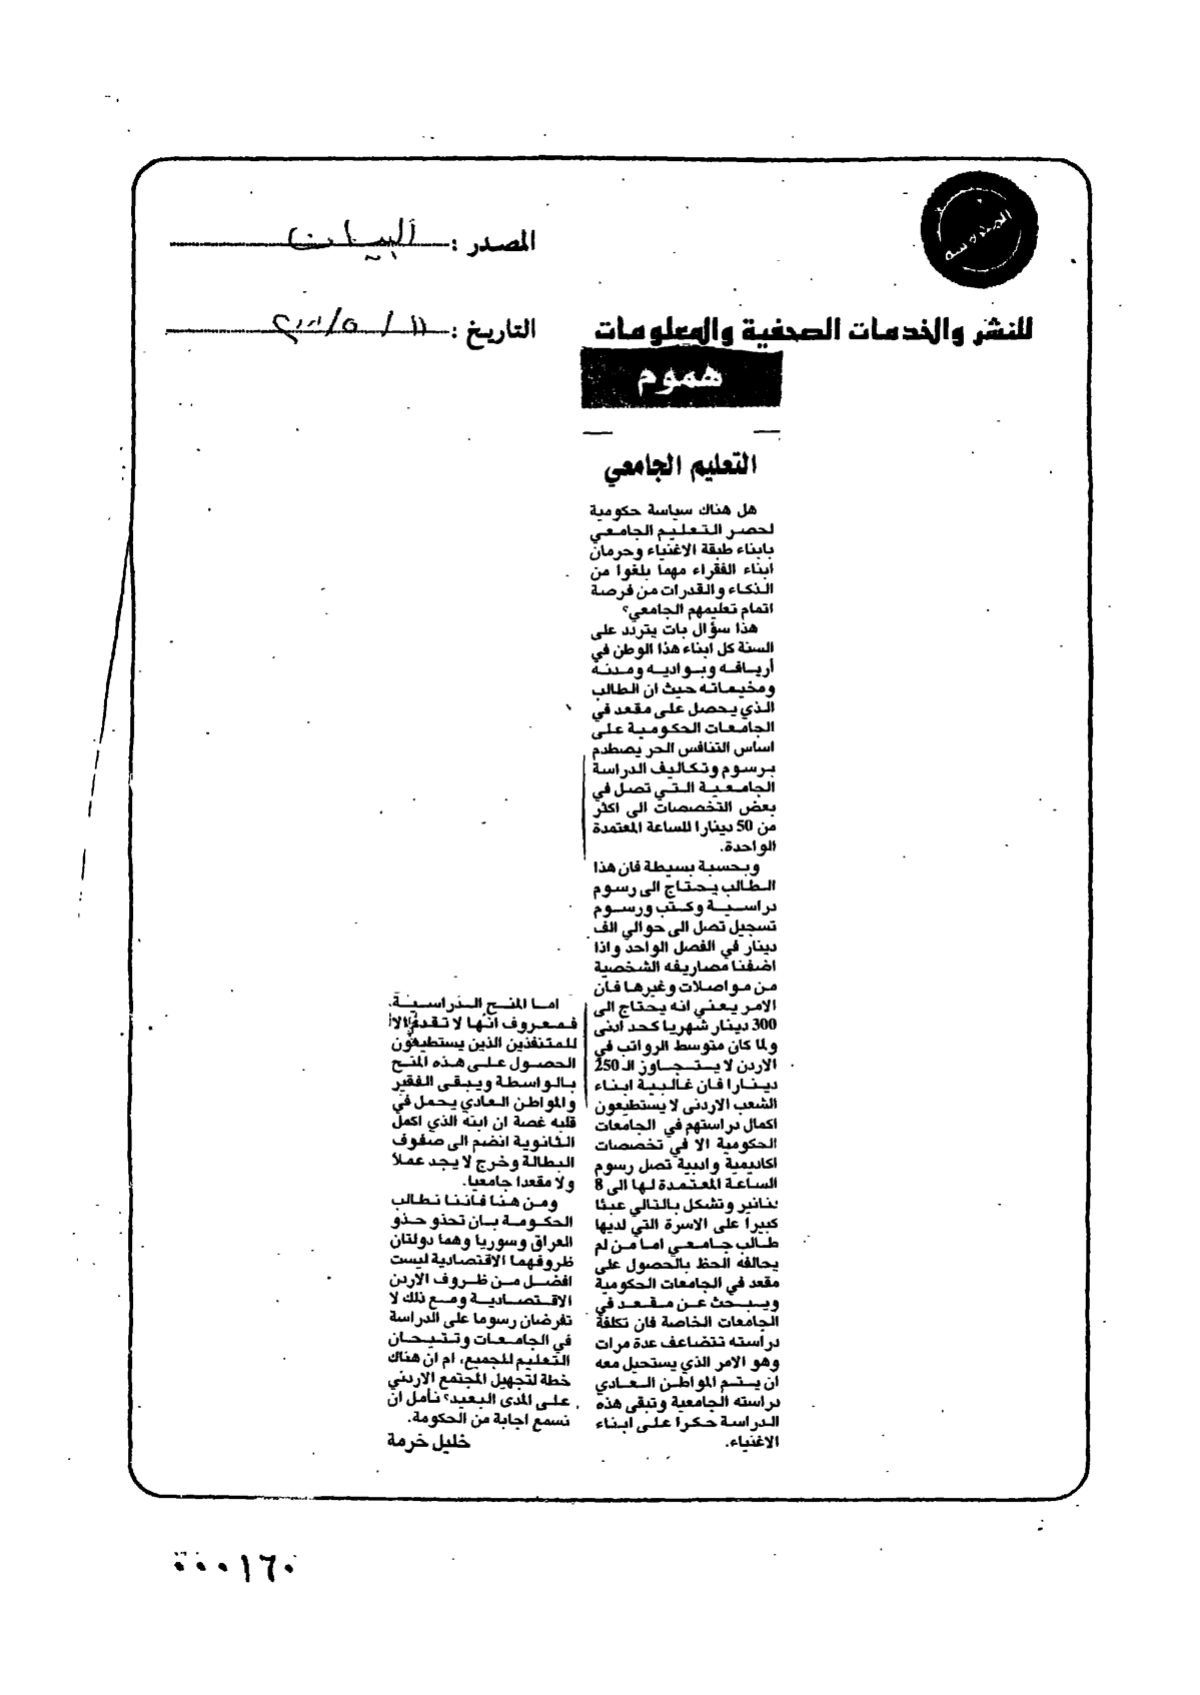 المصدر : البيان
للنشر والخدمات الصحفية والمعلومات
التاريخ : ١١ / ٥ /
هموم
التعليم الجامعي
هل هناك سياسة حكومية
لحصر التعليم الجامعي
بابناء طبقة الاغنياء وحرمان
ابناء الفقراء مهما بلغوا من
الذكاء والقدرات من فرصة
اتمام تعليمهم الجامعي؟
هذا سؤال بات يتردد على
السنة كل ابناء هذا الوطن في
أريافه وبواديه ومدنه
ومخيماته حيث ان الطالب
الذي يحصل على مقعد في
الجامعات الحكومية على
اساس التنافس الحر يصطدم
برسوم وتكاليف الدراسة
الجامعية التي تصل في
بعض التخصصات الى اكثر
من 50 دينارا للساعة المعتمدة
الواحدة.
وبحسبة بسيطة فان هذا
الطالب يحتاج الى رسوم
دراسية وكتب ورسوم
تسجيل تصل الى حوالي الف
دينار في الفصل الواحد واذا
اضفنا مصاريفه الشخصية
من مواصلات وغيرها فان
الامر يعني انه يحتاج الى
300 دينار شهريا كحد ادنى
ولما كان متوسط الرواتب في
الاردن لا يتجاوز الـ 250
دينارا فان غالبية ابناء
الشعب الاردني لا يستطيعون
اكمال دراستهم في الجامعات
الحكومية الا في تخصصات
اكاديمية وادبية تصل رسوم
الساعة المعتمدة لها الى 8
دنانير وتشكل بالتالي عبئا
كبيرا على الاسرة التي لديها
طالب جامعي اما من لم
يحالفه الحظ بالحصول على
مقعد في الجامعات الحكومية
ويبحث عن مقعد في
الجامعات الخاصة فان تكلفة
دراسته تتضاعف عدة مرات
وهو الامر الذي يستحيل معه
ان يتم المواطن العادي
دراسته الجامعية وتبقى هذه
الدراسة حكرا على ابناء
الاغنياء.
اما المنح الدراسية
فمعروف انها لا تقدم الا
للمتنفذين الذين يستطيعون
الحصول على هذه المنح
بالواسطة ويبقى الفقير
والمواطن العادي يحمل في
قلبه غصة ان ابنه الذي اكمل
الثانوية انضم الى صفوف
البطالة وخرج لا يجد عملا
ولا مقعدا جامعيا.
ومن هنا فاننا نطالب
الحكومة بان تحذو حذو
العراق وسوريا وهما دولتان
ظروفهما الاقتصادية ليست
افضل من ظروف الاردن
الاقتصادية ومع ذلك لا
تفرضان رسوما على الدراسة
في الجامعات وتتيحان
التعليم للجميع، ام ان هناك
خطة لتجهيل المجتمع الاردني
على المدى البعيد؟ نأمل ان
نسمع اجابة من الحكومة.
خليل خرمة
٠٠٠١٦٠